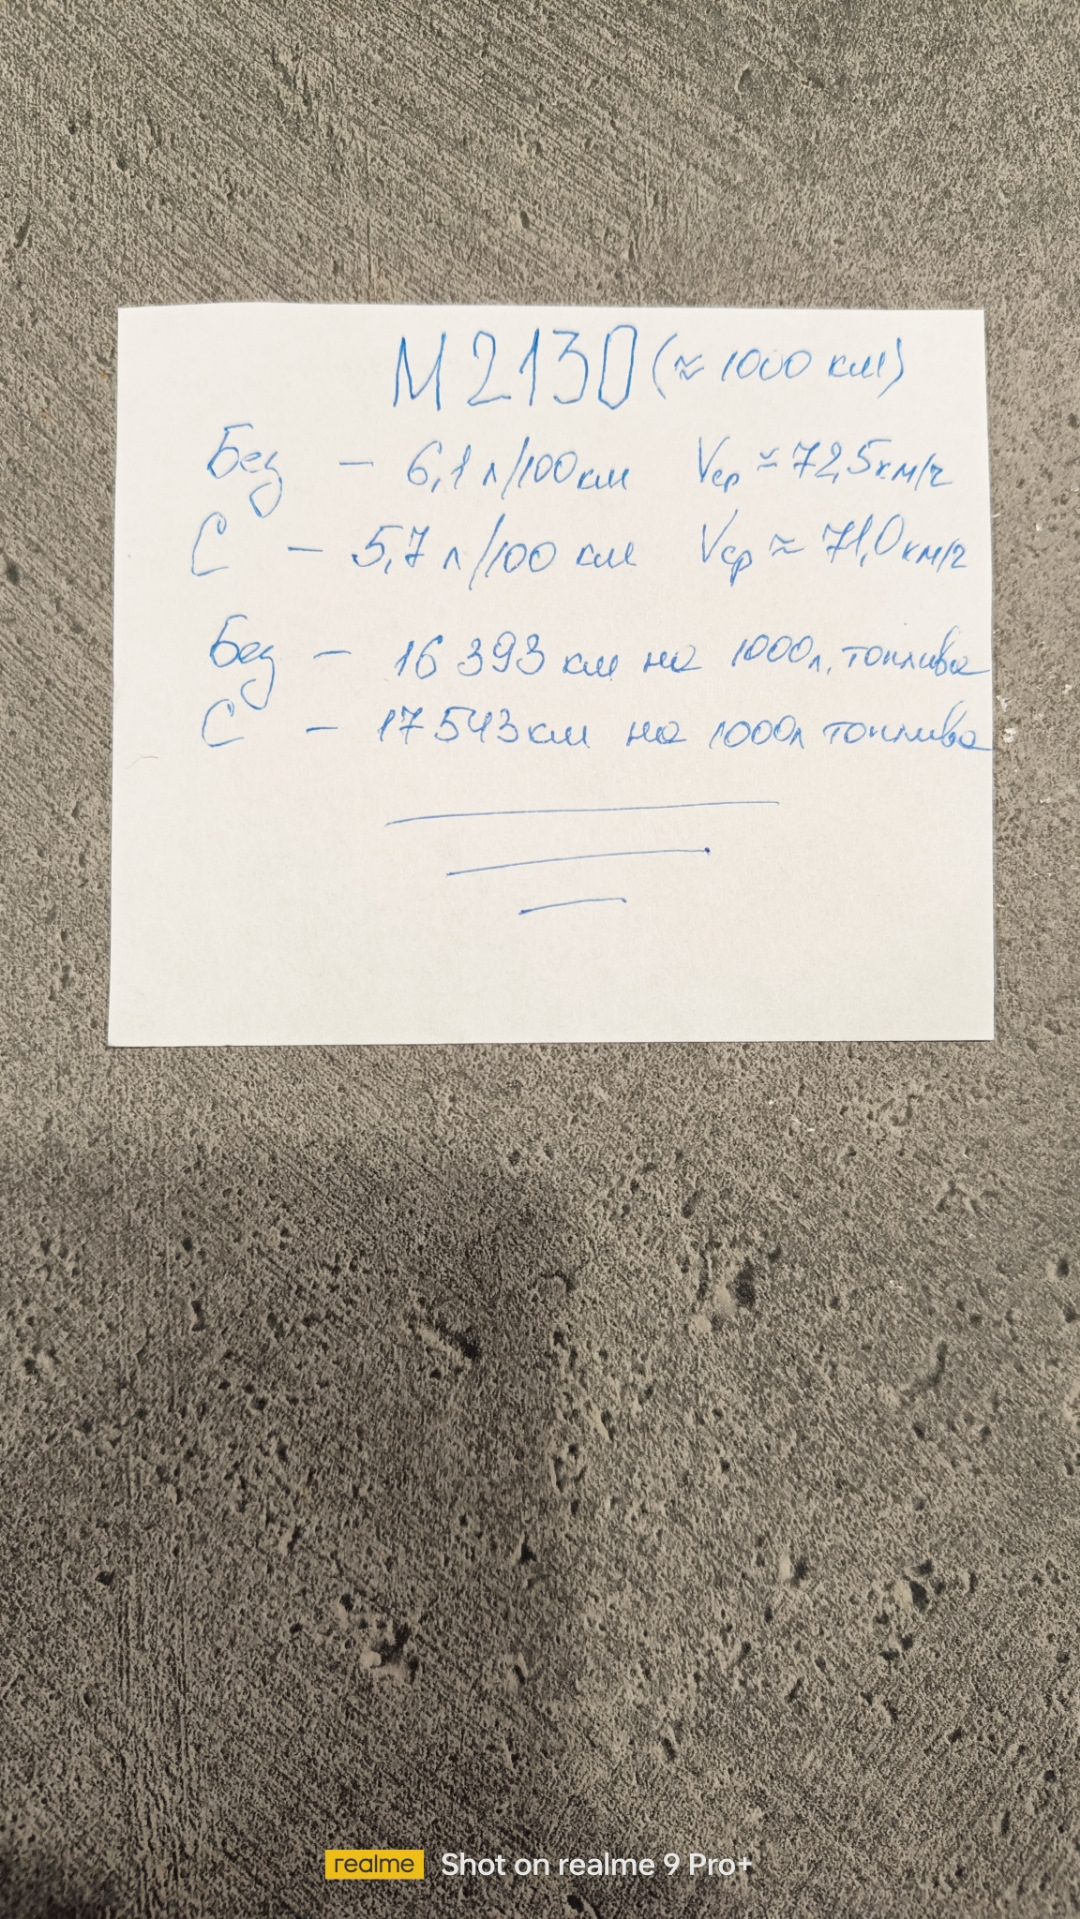 М2130 (≈ 1000 км)
Без – 6,1 л/100 км Vср ≈ 72,5 км/ч
С – 5,7 л/100 км Vср ≈ 71,0 км/ч
Без – 16 393 км на 1000 л. топлива
С – 17 543 км на 1000 л топлива
realme Shot on realme 9 Pro+